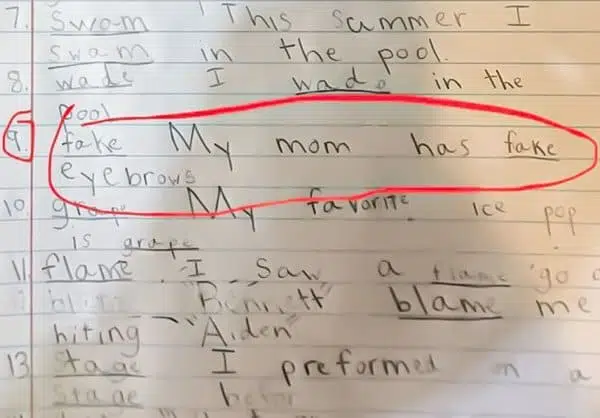 7. swam This summer I
swam in the pool.
8. wade I wade in the
pool
9. fake My mom has fake
eyebrows
10 grape My favorite ice pop
is grape
11. flame I saw a flame go
"Bennett" blame me
hiting "Aiden"
13 stage I preformed on a
stage